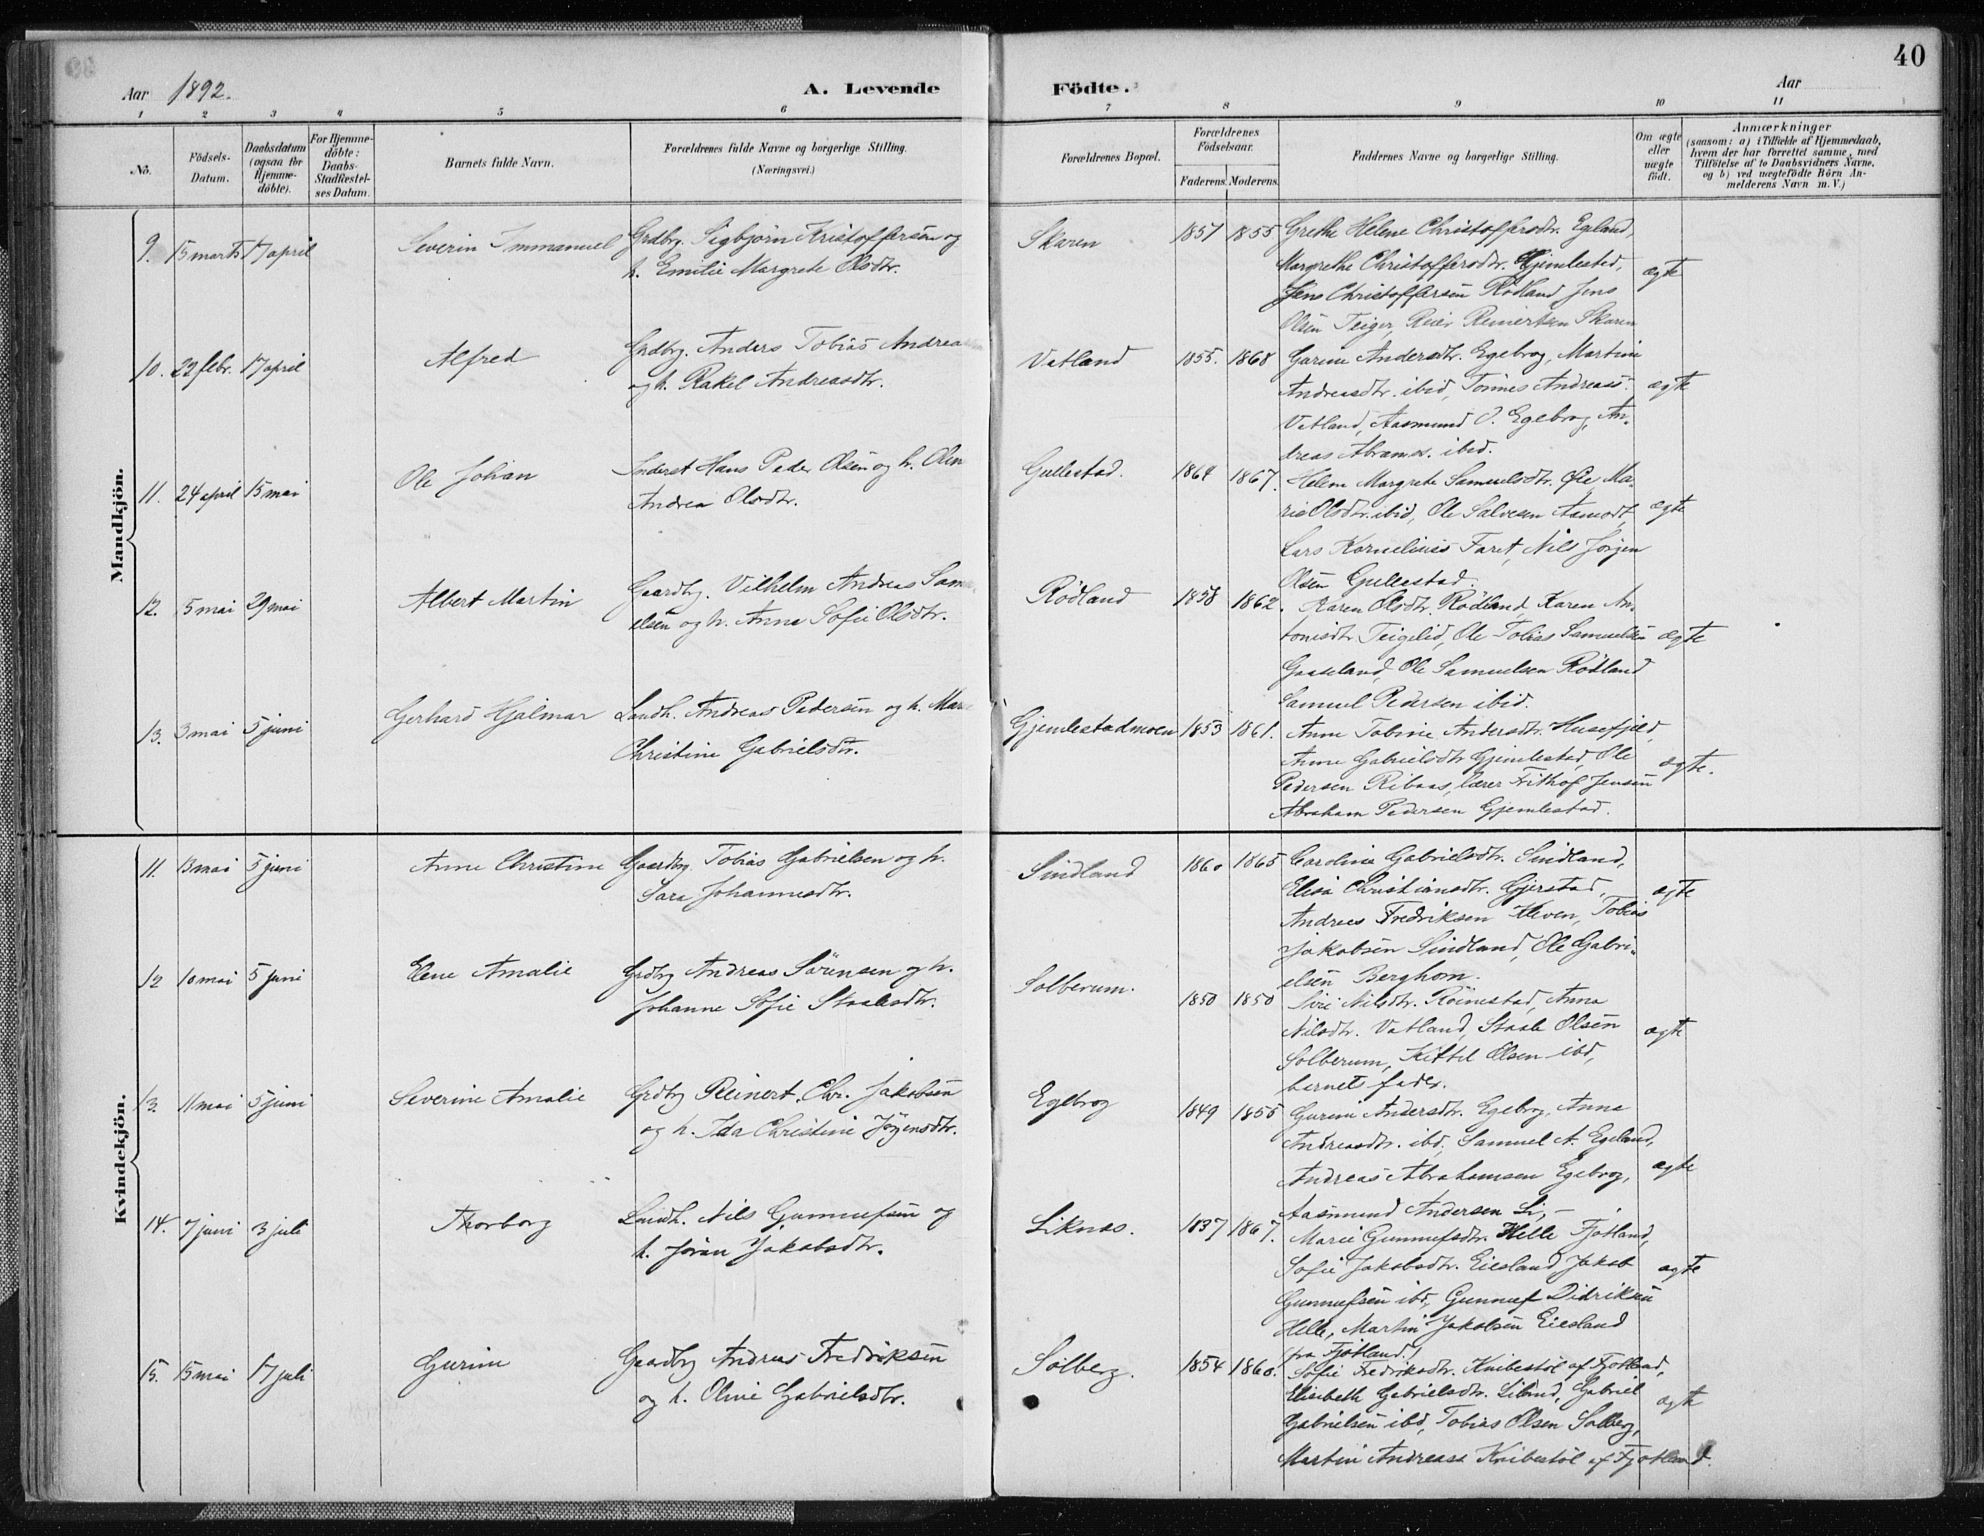 40
Aar 1892.
A. Levende
Födte.
Aar
1 2 3 4 5 6 7 8 9 10 11
No.
Födsels-
Datum.
Daabsdatum
(ogsaa for
Hjemme-
döbte).
For Hjemme-
döbte:
Daabs-
Stadfæstel-
ses Datum.
Barnets fulde Navn.
Forældrenes fulde Navne og borgerlige Stilling.
(Næringsvei.)
Forældrenes Bopæl.
Forældrenes
Födselsaar.
Faderens. Moderens.
Faddernes Navne og borgerlige Stilling.
Om ægte
eller
uægte
födt.
Anmærkninger
(saasom: a) i Tilfælde af Hjemmedaab,
hvem der har forrettet samme, med
Tilföielse af to Daabsvidners Navne,
og b) ved uægtefödte Börn An-
melderens Navn m. V.)
Mandkjön.
9. 15 marts 17 april Severin Immanuel Grdbrg. Sigbjørn Kristoffersen og
h. Emilie Margrete Olsdtr.
Skaren 1857 1855 Grethe Helene Christoffersdtr. Egeland,
Margrethe Christoffersdtr. Gjemlestad,
Jens Christoffersen Rødland Jens
Olsen Teiger, Reier Reinertsen Skaren
ægte
10. 22 febr. 17 april Alfred Grdbrg. Anders Tobias Andrea
og h. Rakel Andreasdtr.
Vatland 1855. 1868 Gurine Andersdtr. Egebrog, Martine
Andreasdtr. ibid, Tönnes Andreass.
Vatland, Aasmund O. Egebrog, An-
dreas Abrams. ibid.
ægte
11. 24 april 15 mai Ole Johan Inderst Hans Peder Olsen og h. Olen
Andrea Olsdtr.
Gullestad. 1864 1867. Helene Margrete Samuelsdtr. Øie, Ma-
rie Olsdtr. ibid, Ole Salvesen Aamodt,
Lars Kornelius Faret, Nils Jörgen
Olsen Gullestad.
ægte
12. 5 mai 29 mai Albert Martin Gaardbg. Vilhelm Andreas Sam
elsen og h. Anna Sofie Olsdtr.
Rödland 1858 1862. Karen Olsdtr. Rødland Karen An-
tonisdtr. Teigelid, Ole Tobias Samuelsen
Gaaseland, Ole Samuelsen Rødland
Samuel Pedersen ibid.
ægte
13. 3 mai 5 juni Gerhard Hjalmar Landh. Andreas Pedersen og h. Mar
Christine Gabrielsdtr.
Gjemlestadmoen 1853 1861. Anne Tobine Andersdtr. Husefjeld,
Anne Gabrielsdtr Gjemlestad, Ole
Pedersen Ribaas, lærer Frithof Jensen
Abraham Pedersen Gjemlestad.
ægte.
Kvindekjön.
11. 13 mai 5 juni Anne Christine Gaardbg. Tobias Gabrielsen og h.
Sara Johannesdtr.
Sindland 1860 1865 Caroline Gabrielsdtr. Sindland,
Elisa Christiansdtr. Gjerstad,
Andreas Fredriksen Kleven, Tobias
Jakobsen Sindland, Ole Gabri-
elsen Berghom.
ægte
12 10 mai 5 juni Elene Amalie Grdbrg Andreas Sörensen og h.
Johanne Sofie Staalesdtr.
Solberum. 1850 1850 Siri Nilsdtr. Röinestad, Anna
Nilsdtr. Vatland, Staale Olsen
Solberum, Kittil Olsen ibd,
barnets fader.
ægte
13. 11 mai 5 juni Severine Amalie Grdbrg Reinert Chr. Jakobsen
og h. Ida Christine Jørgensdtr.
Egebrog 1849 1855 Gurine Andersdtr. Egebrog, Anna
Andreasdtr. ibd, Samuel A. Egeland,
Andreas Abrahamsen Egebrog,
Aasmund Andersen Li, -
ægte
14. 7 juni 3 juli Thorborg Landh. Nils Gunnufsen og
h. Jöran Jakobsdtr.
Liknas. 1837 1867. Marie Gunnufsdtr. Helle Fjotland,
Sofie Jakobsdtr. Eiesland, Jakob
Gunnufsen ibd, Gunnuf Didriksen
Helle, Martin Jakobsen Eiesland
(fra Fjotland.)
ægte
15. 15 mai 17 juli Gurine Gaardbg Andreas Fredriksen
og h. Oline Gabrielsdtr.
Solberg. 1854 1860. Sofie Fredriksdtr. Knibestöl af Fjotland,
Elisabeth Gabrielsdtr. Liland, Gabriel
Gabrielsen ibd, Tobias Olsen Solberg,
Martin Andreass Knibestöl af Fjotland.
ægte